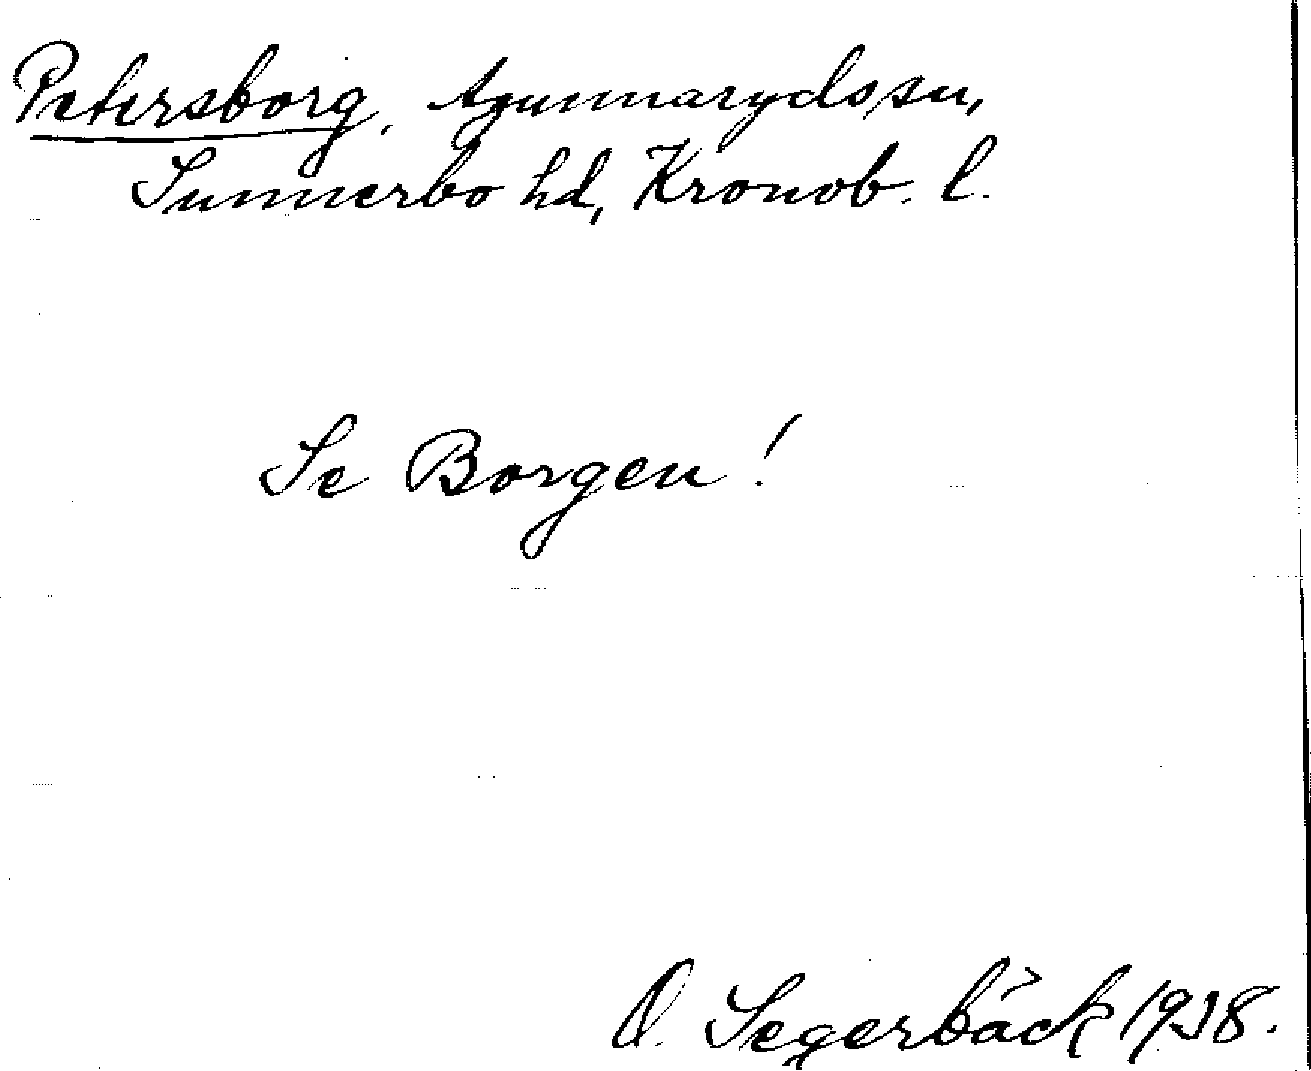 Petersborg, Agunnarydssn,
Sunnerbo hd, Kronob. l.
Se Borgen!
O. Segerbäck 1938.